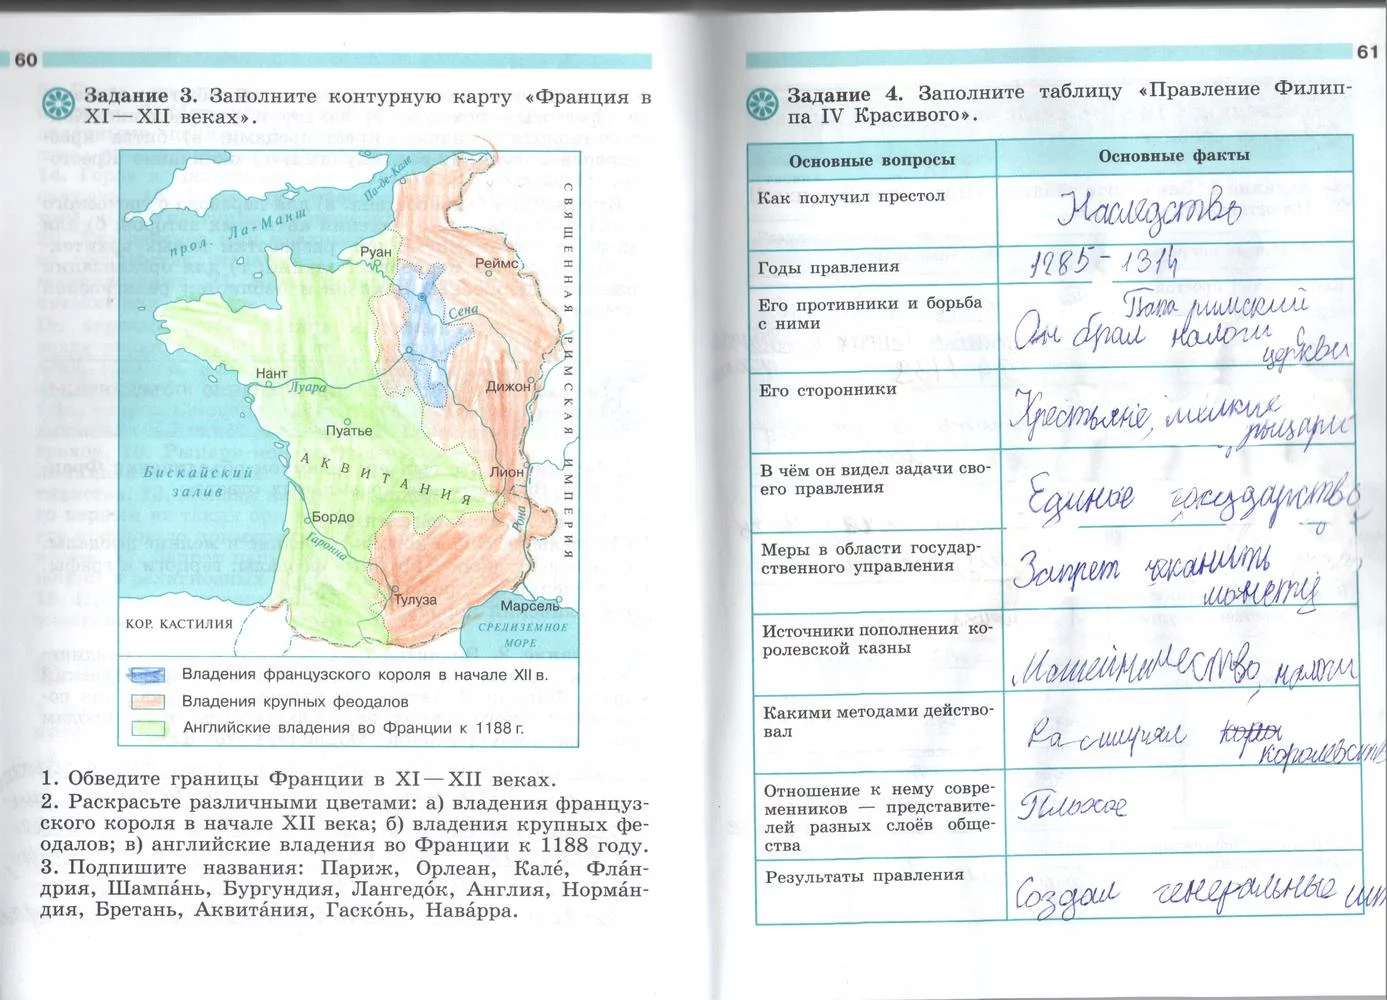 60
Задание 3. Заполните контурную карту «Франция в
XI—XII веках».
Па-де-Кале
прол. Ла-Манш
Руан
Реймс
Сена
Нант
Луара
Дижон
Пуатье
АКВИТАНИЯ
Лион
Бискайский
залив
Бордо
Гаронна
Рона
Тулуза
Марсель
КОР. КАСТИЛИЯ
СРЕДИЗЕМНОЕ
МОРЕ
СВЯЩЕННАЯ РИМСКАЯ ИМПЕРИЯ
Владения французского короля в начале XII в.
Владения крупных феодалов
Английские владения во Франции к 1188 г.
1. Обведите границы Франции в XI—XII веках.
2. Раскрасьте различными цветами: а) владения француз-
ского короля в начале XII века; б) владения крупных фе-
одалов; в) английские владения во Франции к 1188 году.
3. Подпишите названия: Париж, Орлеан, Кале́, Фла́н-
дрия, Шампа́нь, Бургундия, Лангедо́к, Англия, Норма́н-
дия, Бретань, Аквита́ния, Гаско́нь, Нава́рра.
61
Задание 4. Заполните таблицу «Правление Филип-
па IV Красивого».
Основные вопросы
Основные факты
Как получил престол
Наследство
Годы правления
1285 - 1314
Его противники и борьба
с ними
Папа римский
Он брал налоги с
церкви
Его сторонники
Крестьяне, мелкие
рыцари
В чём он видел задачи сво-
его правления
Единое государство
Меры в области государ-
ственного управления
Запрет чеканить
монету
Источники пополнения ко-
ролевской казны
Мошенничество, налоги
Какими методами действо-
вал
Расширял
королевств
Отношение к нему совре-
менников — представите-
лей разных слоёв обще-
ства
Плохое
Результаты правления
Создал генеральные шт